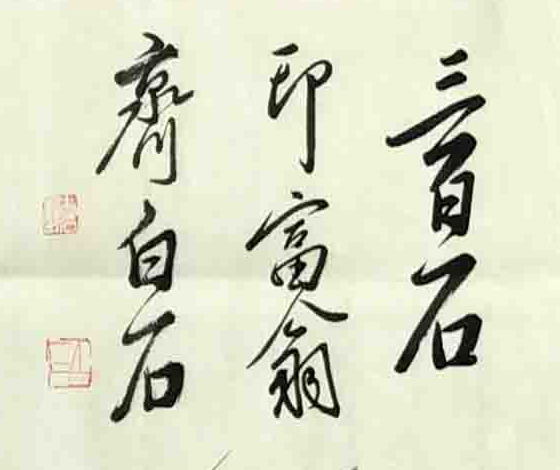 三百石
印富翁
齊白石